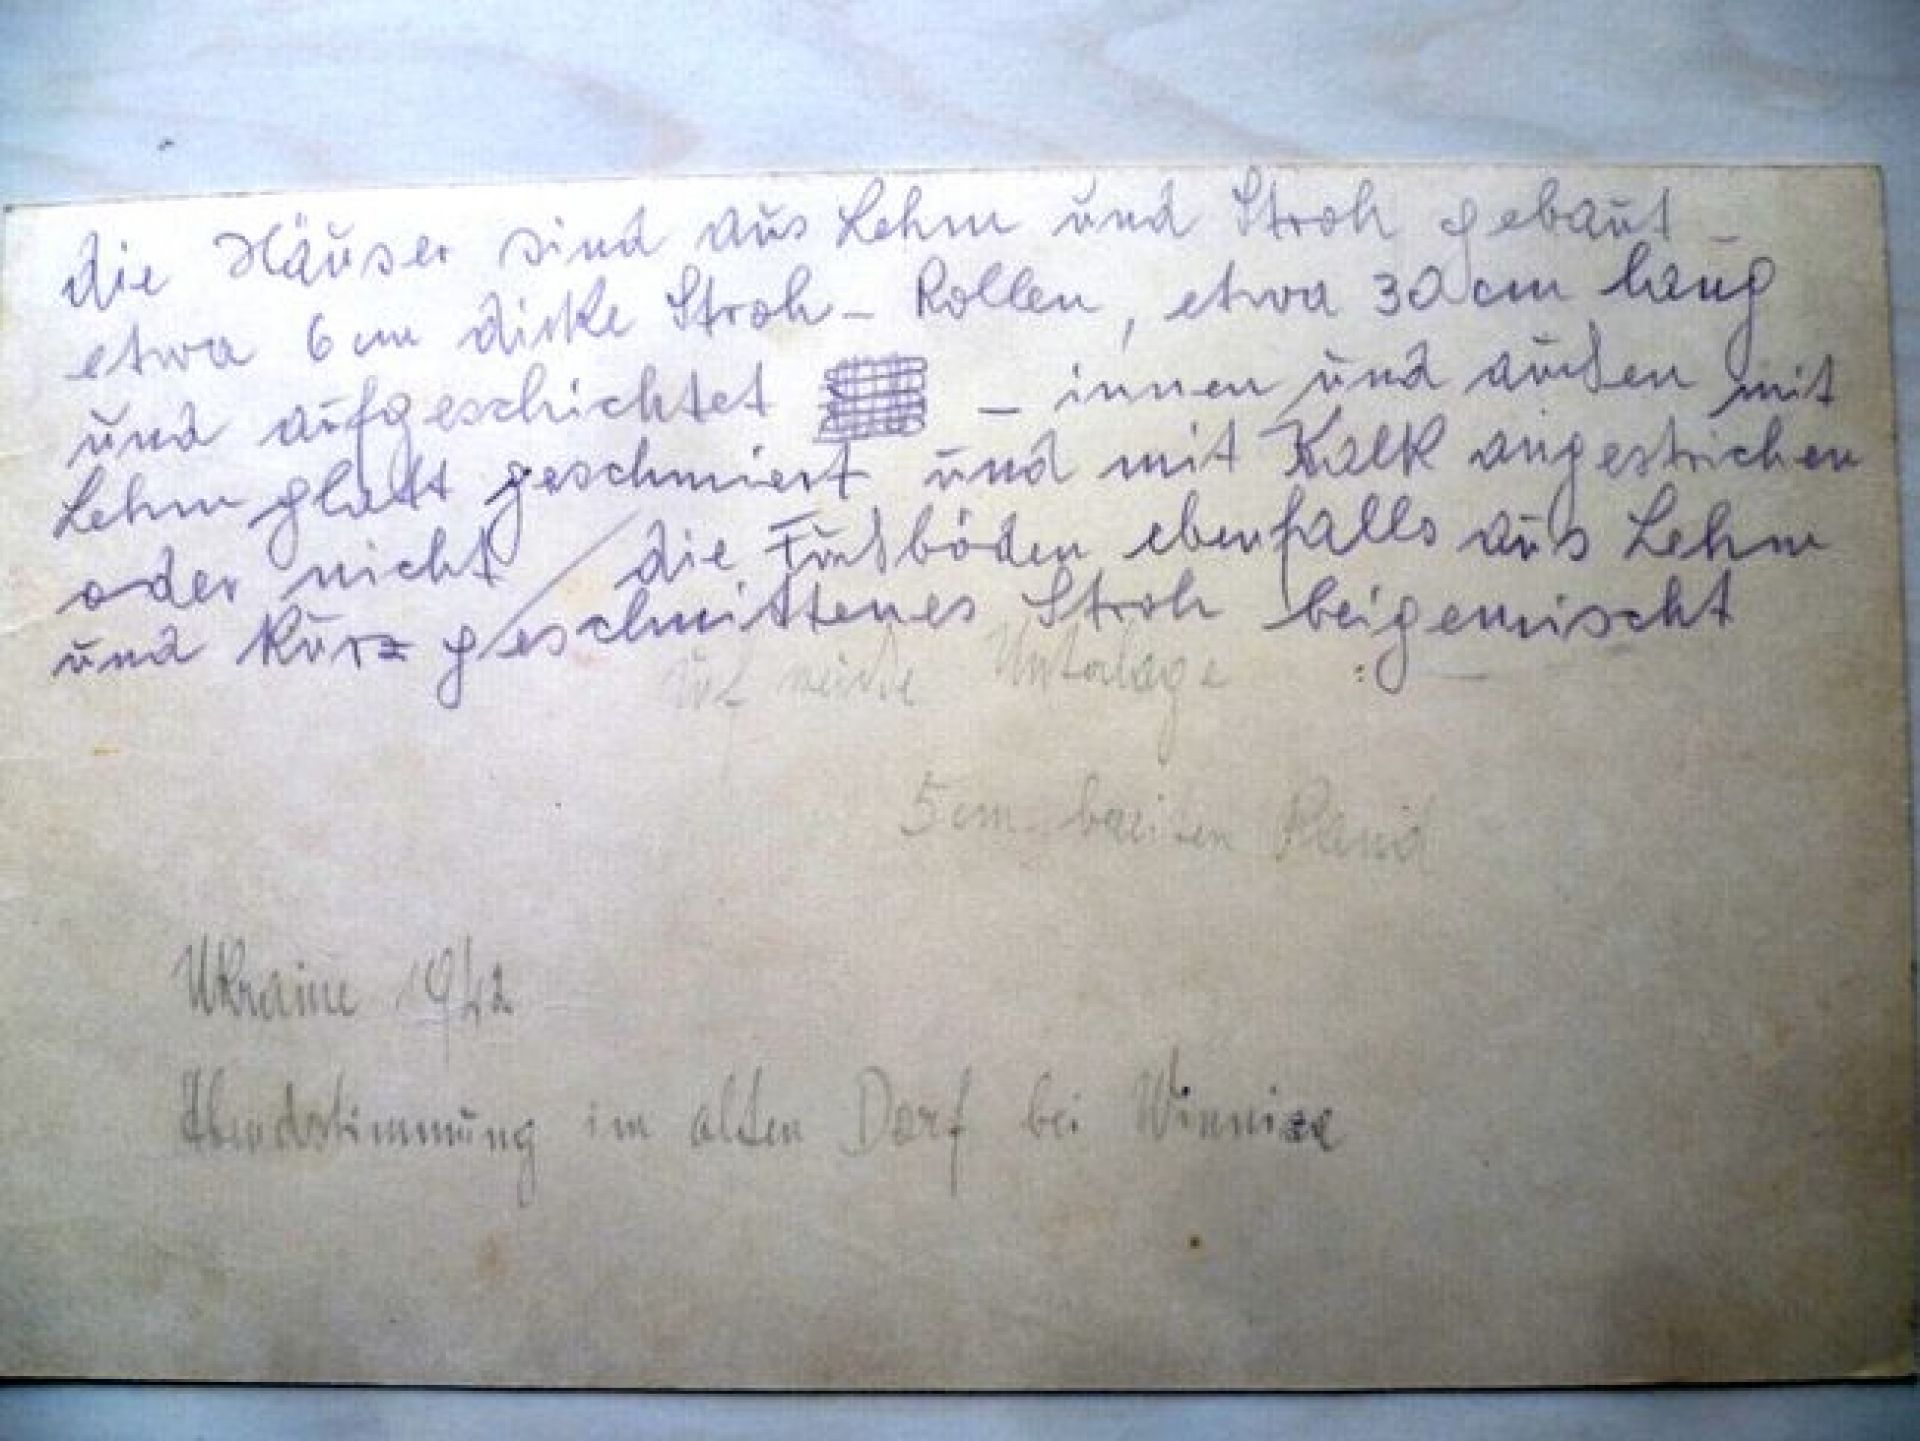 die Häuser sind aus Lehm und Stroh gebaut -
etwa 6 cm dicke Stroh - Rollen, etwa 30 cm lang
und aufgeschichtet - innen und außen mit
Lehm glatt geschmiert und mit Kalk angestrichen
oder nicht / die Fußböden ebenfalls aus Lehm
und kurz geschnittenes Stroh beigemischt
Unterlage
5 cm breiten Rand
Ukraine 1942
Abendstimmung im alten Dorf bei Winniza